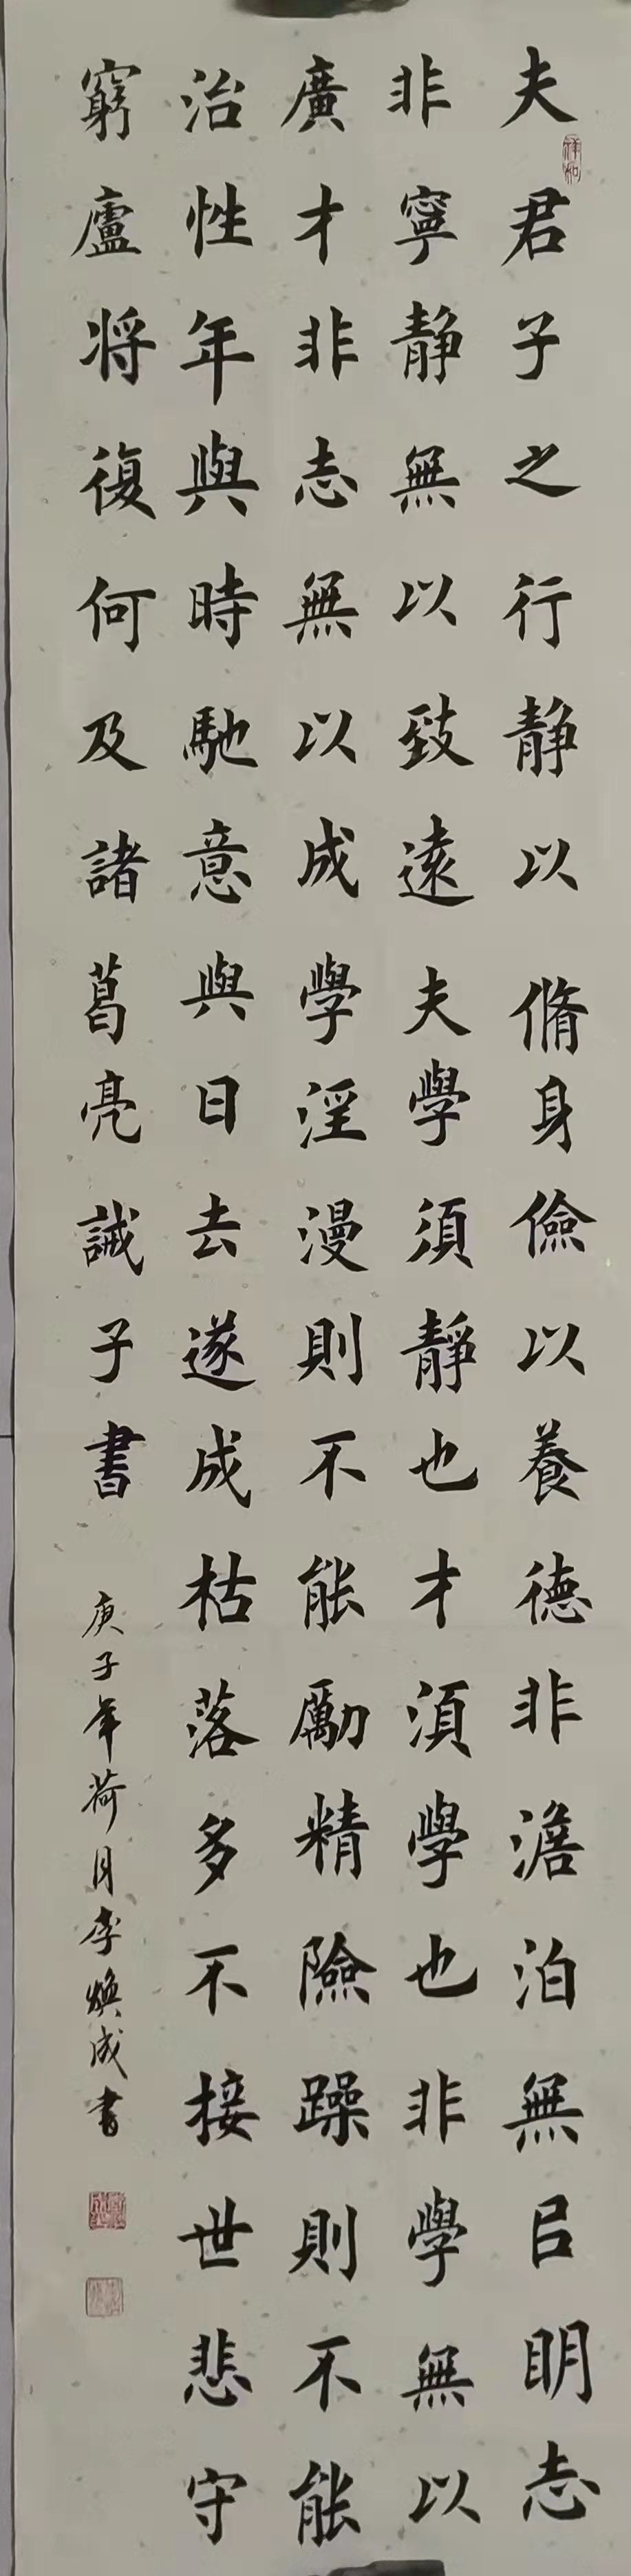 夫君子之行静以脩身儉以養德非澹泊無㠯明志
非寧静無以致遠夫學須靜也才須學也非學無以
廣才非志無以成學淫漫則不能勵精險躁則不能
治性年與時馳意與日去遂成枯落多不接世悲守
窮廬将復何及諸葛亮誡子書
庚子年荷月李焕成書